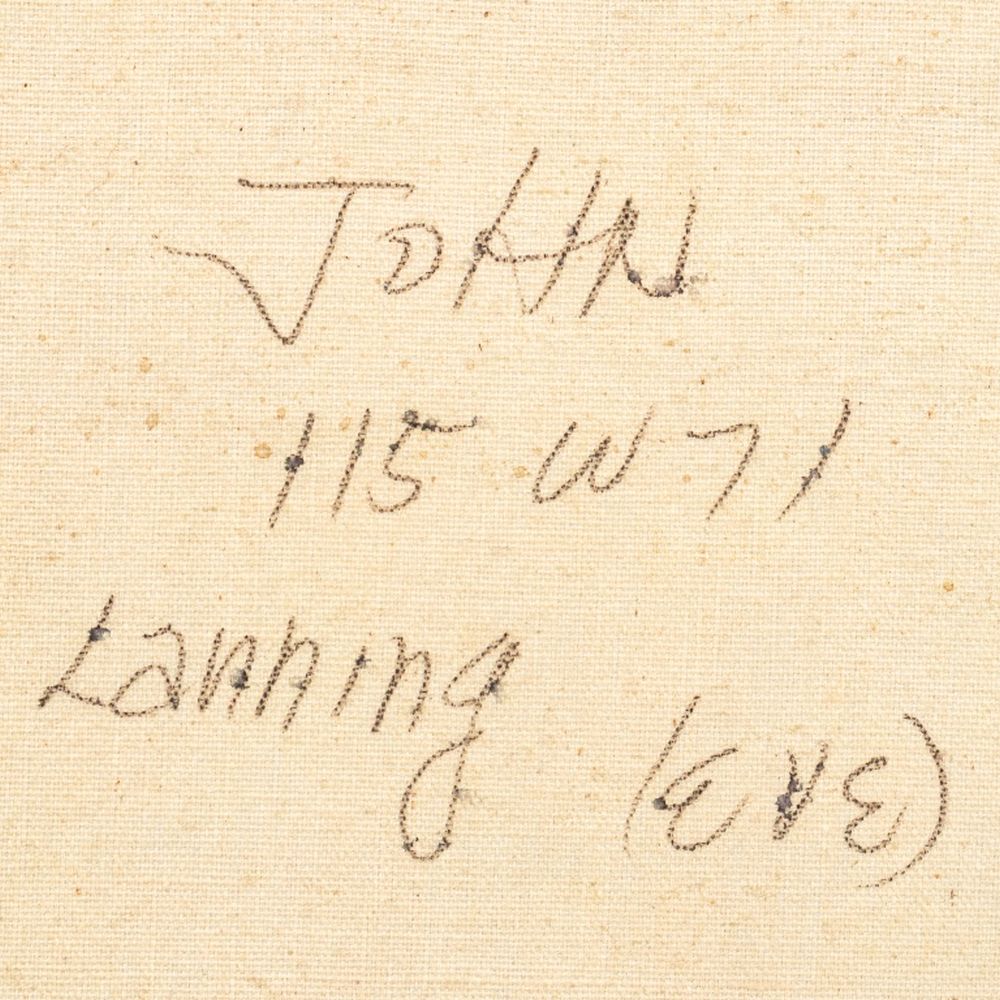 JOHN
115 W 71
Lanning
(EVE)